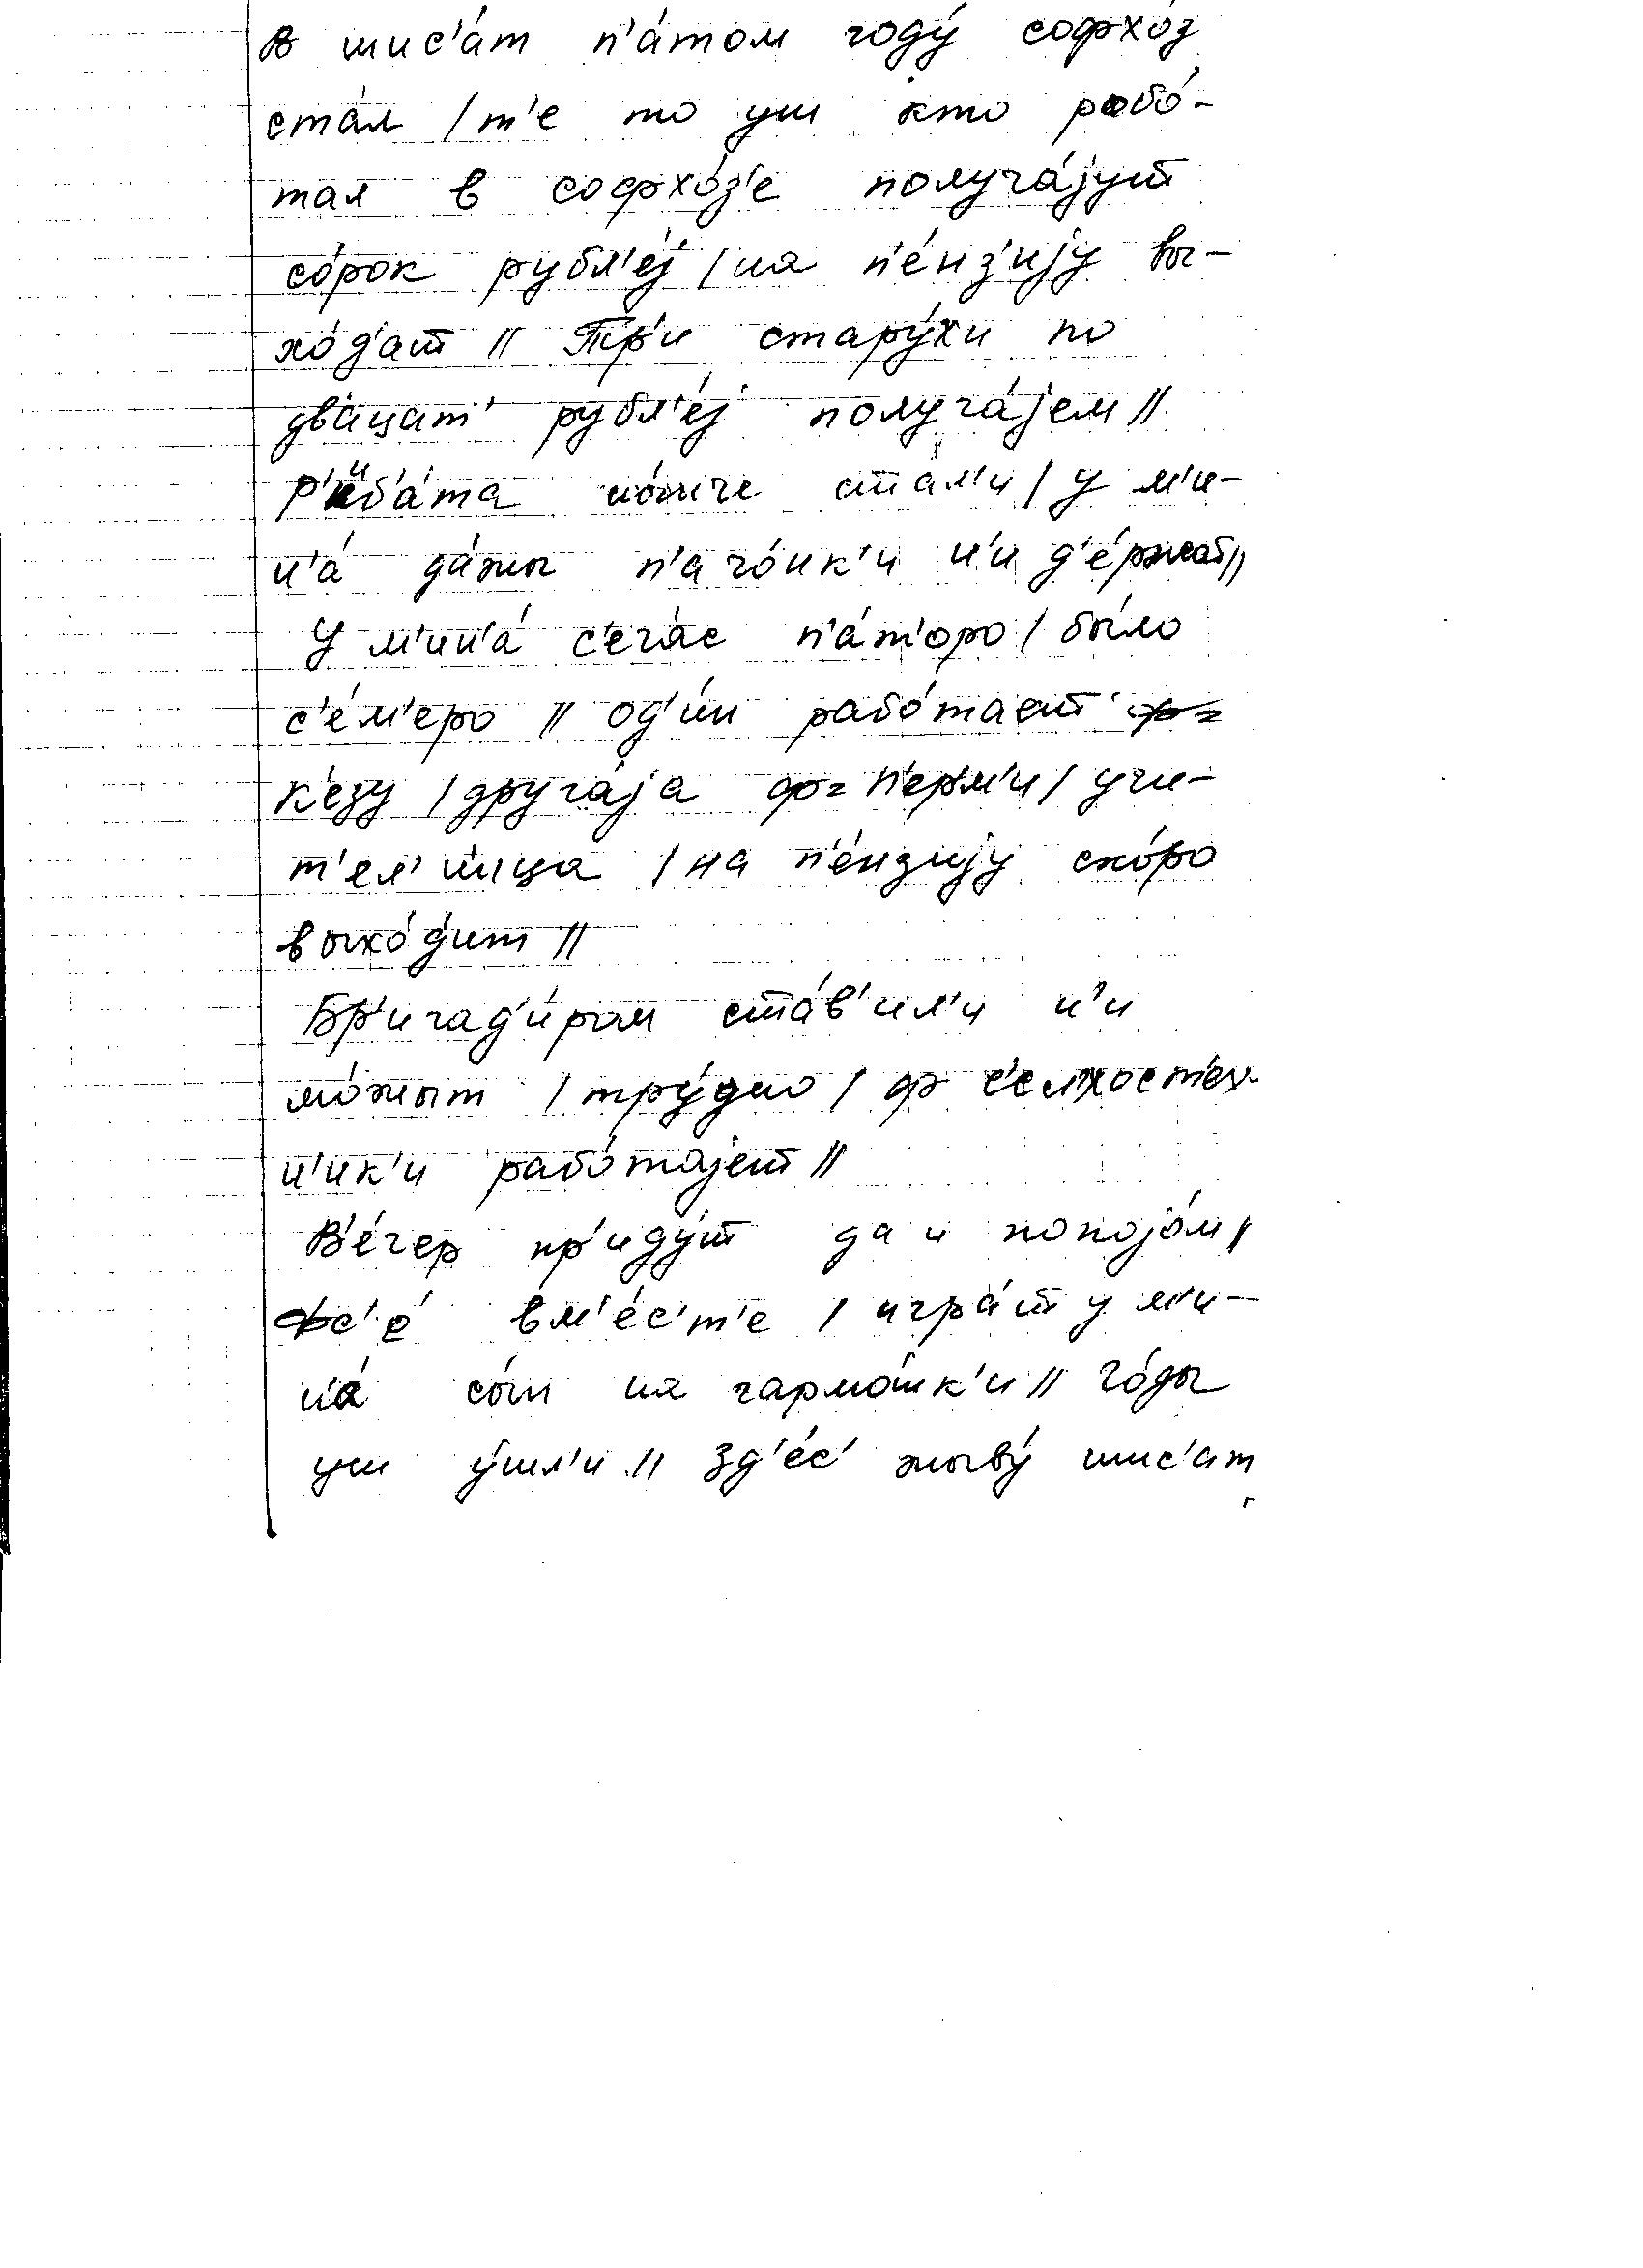 в шис'а́т п'а́том году́ софхо́з
ста́л / т'е то уш кто рабо́-
тал в софхо́з'е получа́јут
со́рок рубл'е́ј / на п'е́нз'ију вы-
хо́д'ат // Тр'и стару́хи по
два́цат' рубл'е́ј получа́јем //
Р'иб'а́та но́нче стал'и / у м'и-
н'а́ да́жы п'аго́нк'и н'и д'е́ржат //
У м'ин'а́ с'еча́с п'а́т'оро / бы́ло
с'е́м'еро // од'и́н рабо́тает
к'е́зу / друга́ја ф= П'ерм'и / учи-
т'ел'ница / на п'е́нзију ско́ро
выхо́д'ит //
Бр'игад'и́ром ста́в'ил'и н'и
мо́жыт / тру́дно / ф с'ел'хост'ех-
н'ик'и рабо́тајет //
В'е́чер пр'иду́т да и попојо́м /
фс'е́ вм'е́с'т'е / игра́т у м'и-
н'а́ сы́н на гармо́шк'и // го́ды
уш у́шл'и // Зд'е́с' жыву́ шис'ат